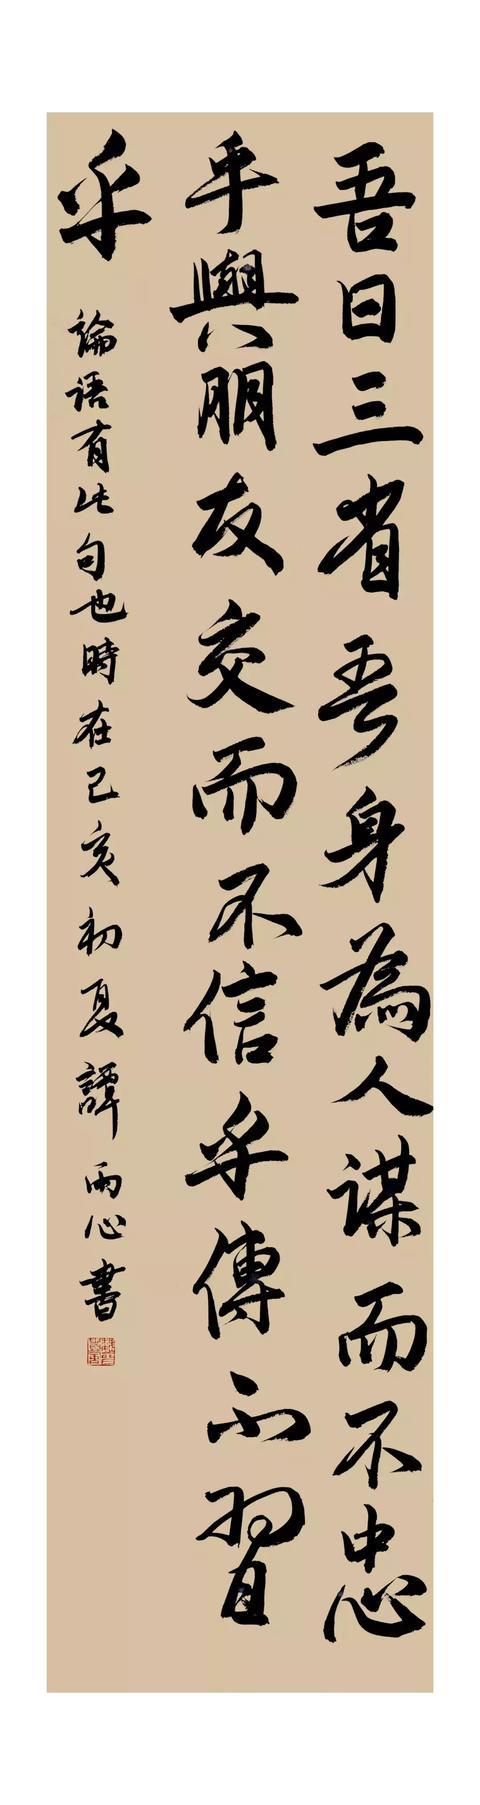 吾日三省吾身為人謀而不忠
乎與朋友交而不信乎傳不習
乎
論语有此句也時在己亥初夏譚雨心書